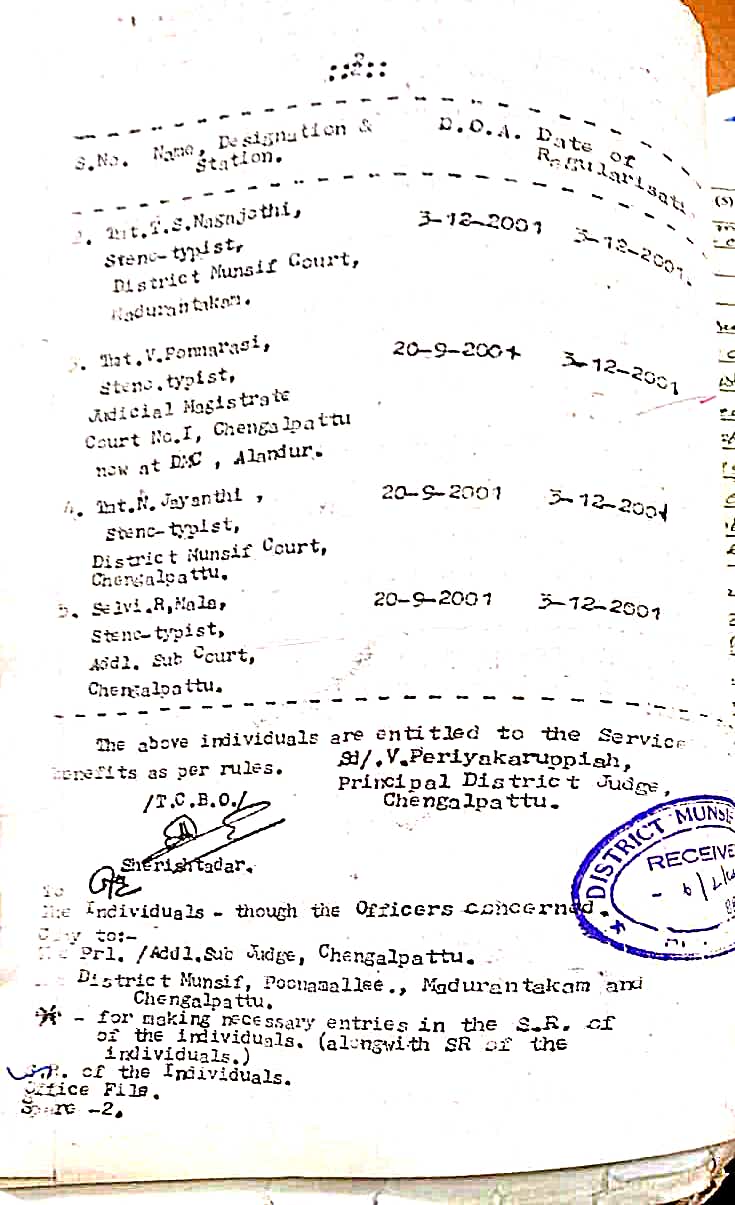 ::2::
S.No. Name, Designation & D.O.A. Date of
Station. Regularisati
2. Tmt.T.S.Nagajothi, 3-12-2001 3-12-2001.
Steno-typist,
District Munsif Court,
Madurantakam.
3. Tmt.V.Ponnarasi, 20-9-2001 3-12-2001
Steno.typist,
Judicial Magistrate
Court No.I, Chengalpattu
now at DMC , Alandur.
4. Tmt.N.Jayanthi , 20-9-2001 3-12-2001
Steno-typist,
District Munsif Court,
Chengalpattu.
5. Selvi.R,Mala, 20-9-2001 3-12-2001
Steno-typist,
Addl. Sub Court,
Chengalpattu.
The above individuals are entitled to the Service
benefits as per rules. Sd/.V.Periyakaruppiah,
Principal District Judge,
/T.C.B.O./ Chengalpattu.
Sherishtadar.
To
The Individuals - though the Officers concerned.
Copy to:-
The Prl. /Addl.Sub Judge, Chengalpattu.
District Munsif, Poonamallee., Madurantakam and
Chengalpattu.
* - for making necessary entries in the S.R. of
of the individuals. (alongwith SR of the
individuals.)
S.R. of the Individuals.
Office File.
Spare -2.
DISTRICT MUNSIF
RECEIVE